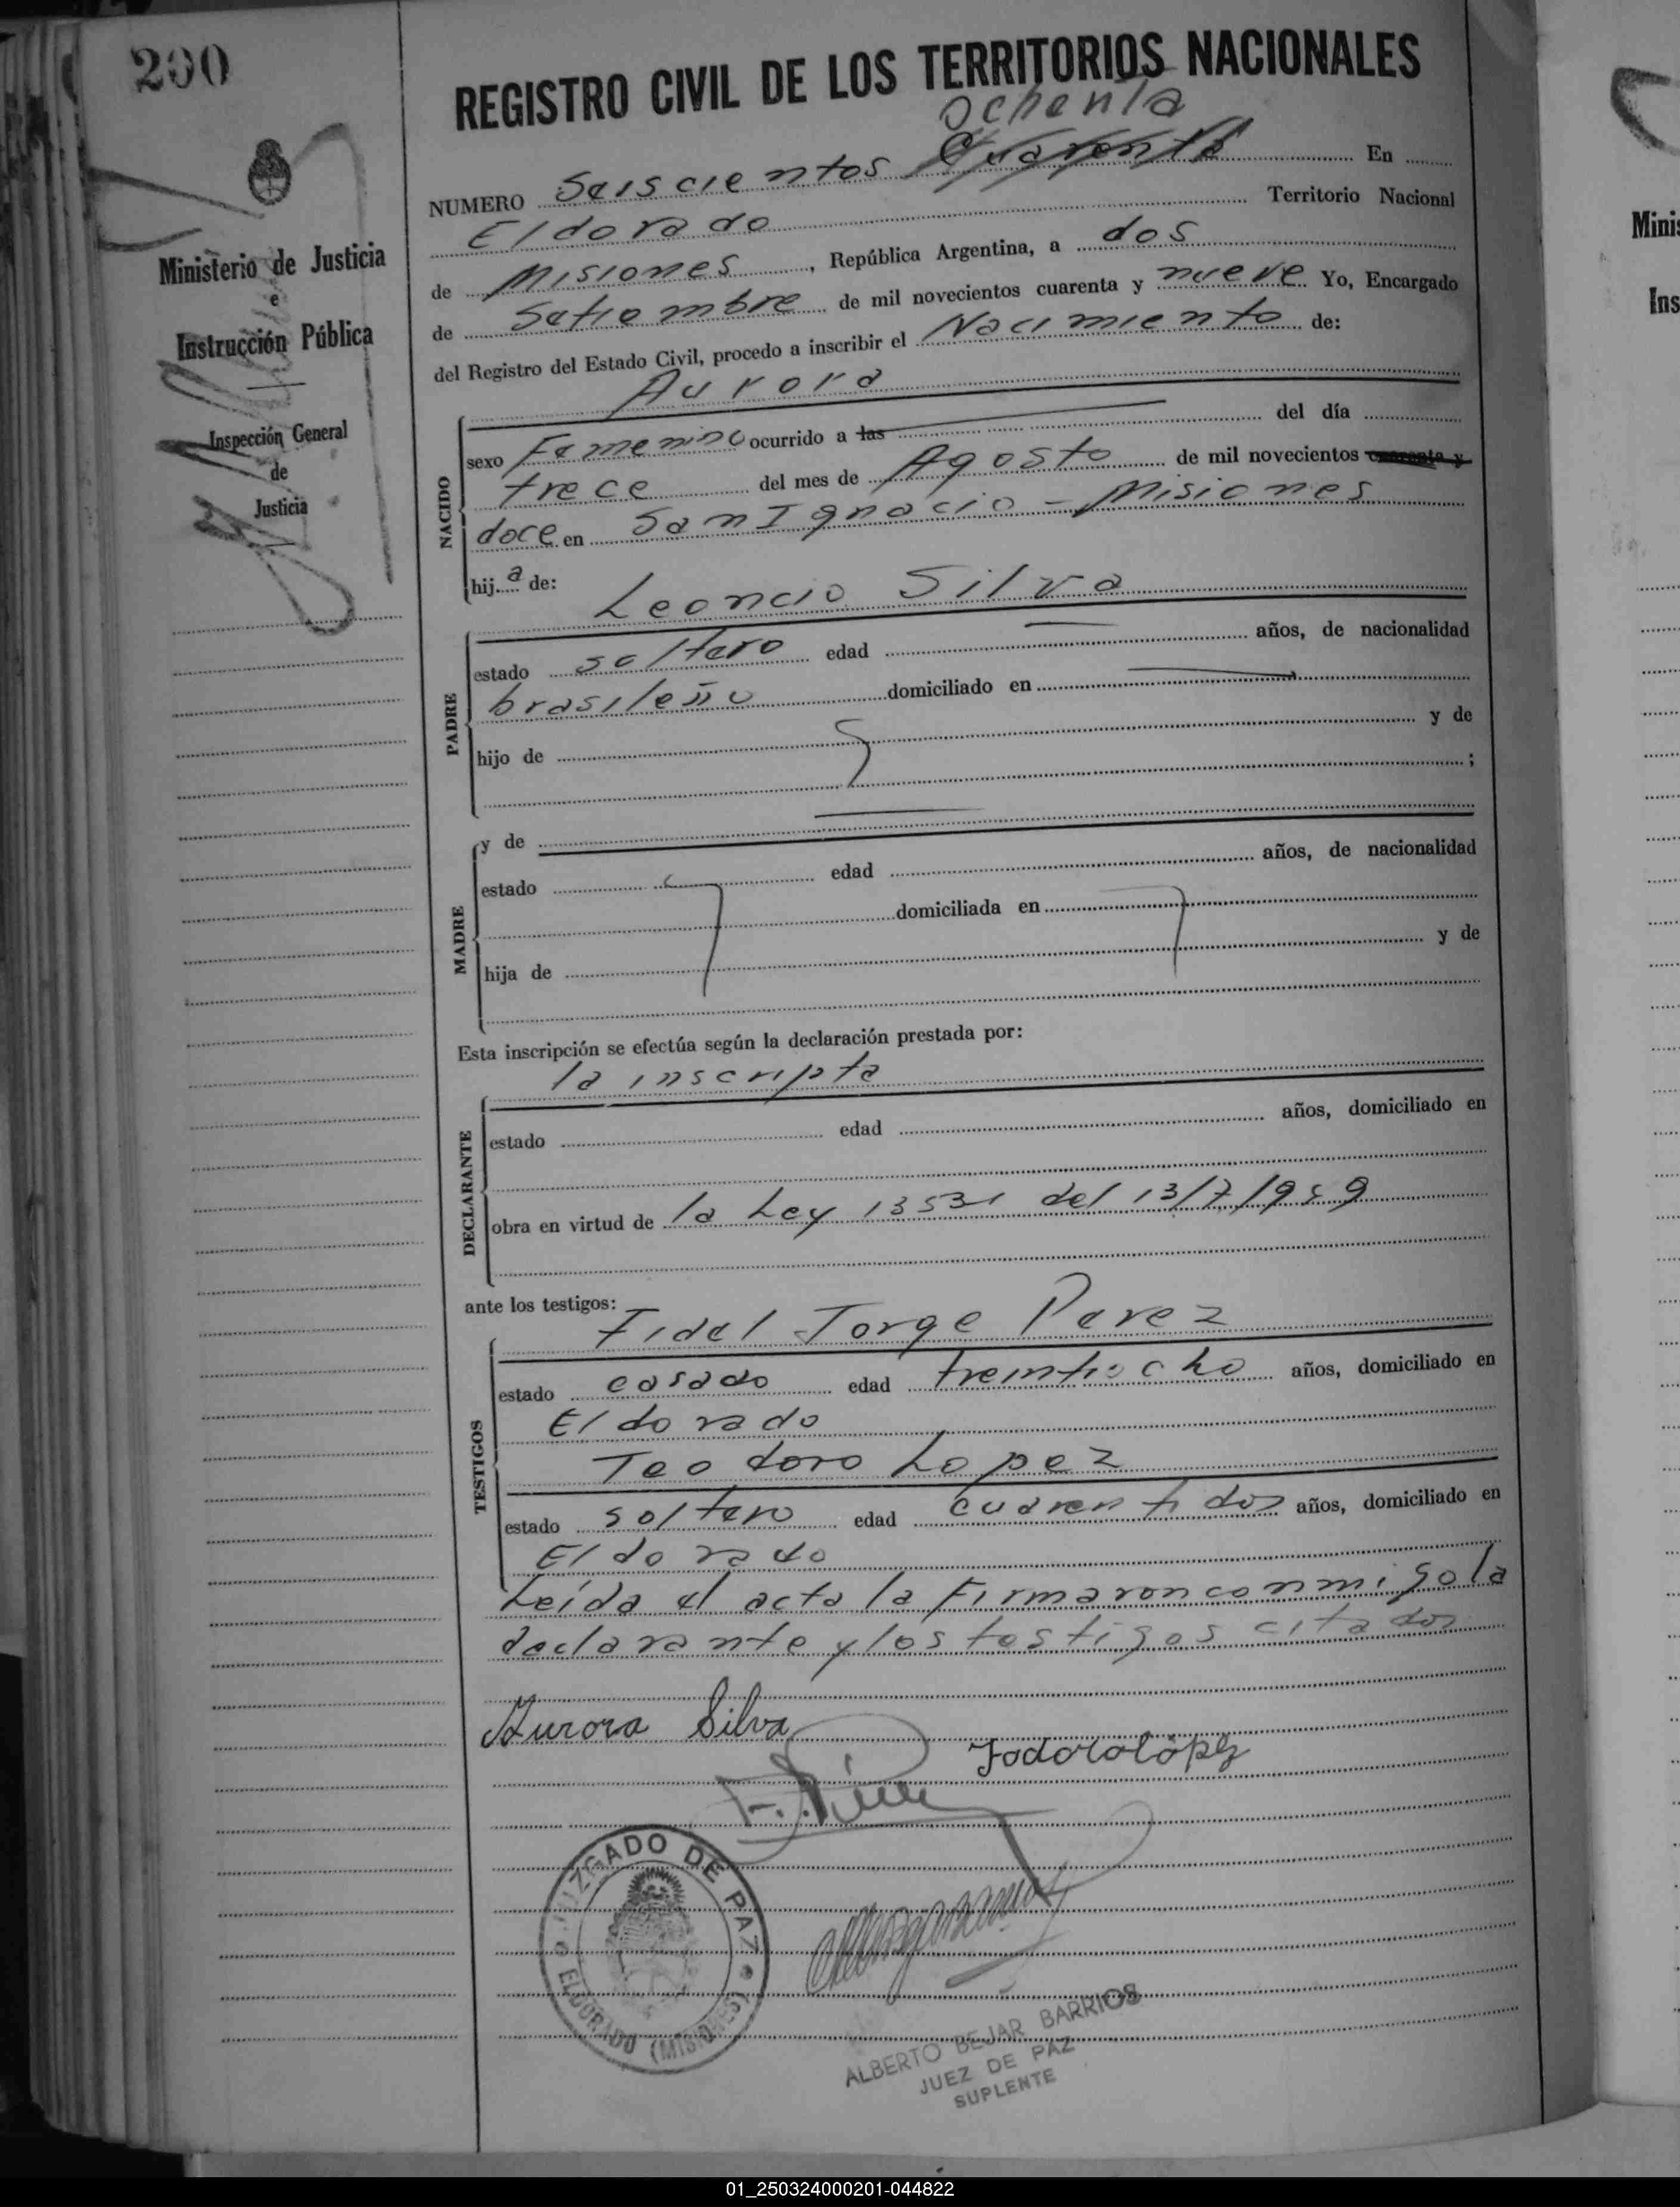 200
REGISTRO CIVIL DE LOS TERRITORIOS NACIONALES
ochenta
NUMERO Seiscientos Cuarenta En
Eldorado Territorio Nacional
de Misiones, República Argentina, a dos
de Setiembre de mil novecientos cuarenta y nueve Yo, Encargado
del Registro del Estado Civil, procedo a inscribir el Nacimiento de:
Aurora
Ministerio de Justicia
e
Instrucción Pública
Inspección General
de
Justicia
NACIDO
sexo Femenino ocurrido a las del día
trece del mes de Agosto de mil novecientos cuarenta y
doce en San Ignacio - Misiones
hij a de:
Leoncio Silva
PADRE
estado soltero edad años, de nacionalidad
brasileño domiciliado en
hijo de y de
;
y de
MADRE
estado edad años, de nacionalidad
domiciliada en
hija de y de
Esta inscripción se efectúa según la declaración prestada por:
la inscripta
DECLARANTE
estado edad años, domiciliado en
obra en virtud de la Ley 13531 del 13/7/949
ante los testigos:
Fidel Jorge Perez
TESTIGOS
estado casado edad treintiocho años, domiciliado en
Eldorado
Teodoro Lopez
estado soltero edad cuarentidos años, domiciliado en
Eldorado
Leída el acta la Firmaron conmigo la
declarante y los testigos citados
Aurora Silva
Todorolópez
JUZGADO DE PAZ
ELDORADO (MISIONES)
ALBERTO BEJAR BARRIOS
JUEZ DE PAZ
SUPLENTE
Minis
Ins
01_250324000201-044822